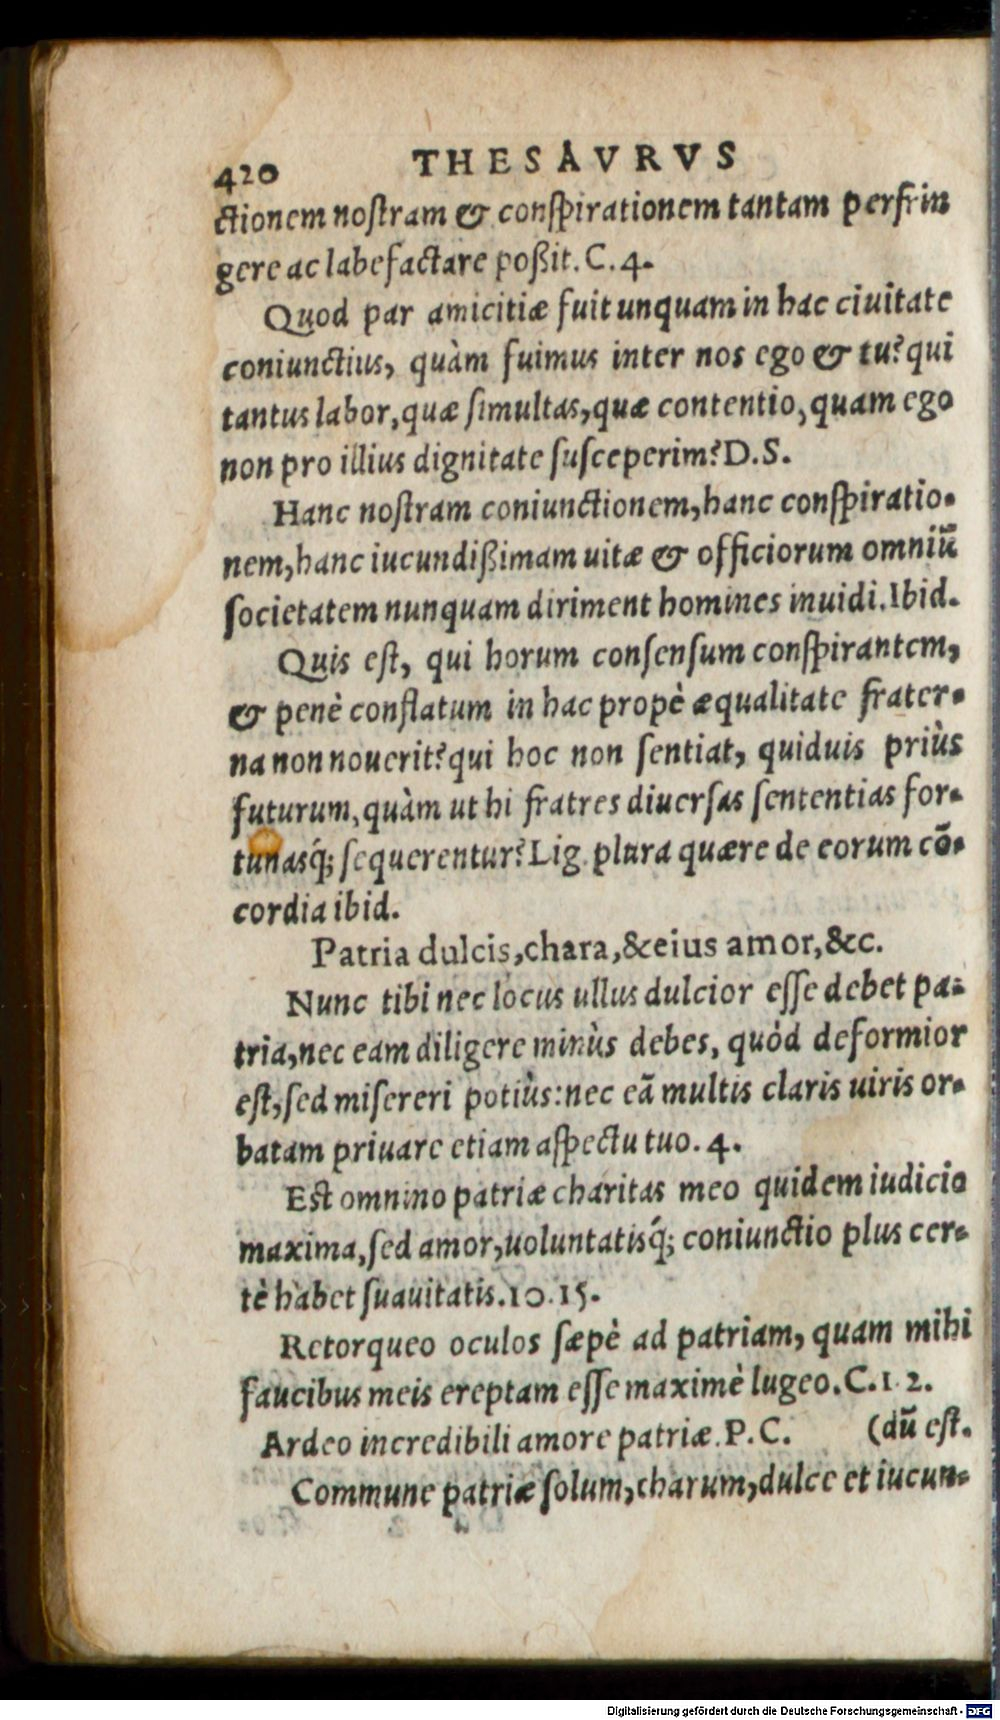 420 THESAVRVS
ctionem nostram & conspirationem tantam perfrin
gere ac labefactare poßit. C. 4.
Quod par amicitiæ fuit unquam in hac ciuitate
coniunctius, quàm fuimus inter nos ego & tu? qui
tantus labor, quæ simultas, quæ contentio, quam ego
non pro illius dignitate susceperim? D. S.
Hanc nostram coniunctionem, hanc conspiratio-
nem, hanc iucundißimam uitæ & officiorum omniũ
societatem nunquam diriment homines inuidi. Ibid.
Quis est, qui horum consensum conspirantem,
& penè conflatum in hac propè æqualitate frater-
na non nouerit? qui hoc non sentiat, quiduis priùs
futurum, quàm ut hi fratres diuersas sententias for-
tunasq́; sequerentur? Lig. plura quære de eorum cõ-
cordia ibid.
Patria dulcis, chara, & eius amor, &c.
Nunc tibi nec locus ullus dulcior esse debet pa-
tria, nec eam diligere minùs debes, quòd deformior
est, sed misereri potiùs: nec eã multis claris uiris or-
batam priuare etiam aspectu tuo. 4.
Est omnino patriæ charitas meo quidem iudicio
maxima, sed amor, uoluntatisq́; coniunctio plus cer-
tè habet suauitatis. 10. 15.
Retorqueo oculos sæpè ad patriam, quam mihi
faucibus meis ereptam esse maximè lugeo. C. 12.
Ardeo incredibili amore patriæ. P. C. (dũ est.
Commune patriæ solum, charum, dulce et iucun-
Digitalisierung gefördert durch die Deutsche Forschungsgemeinschaft - DFG